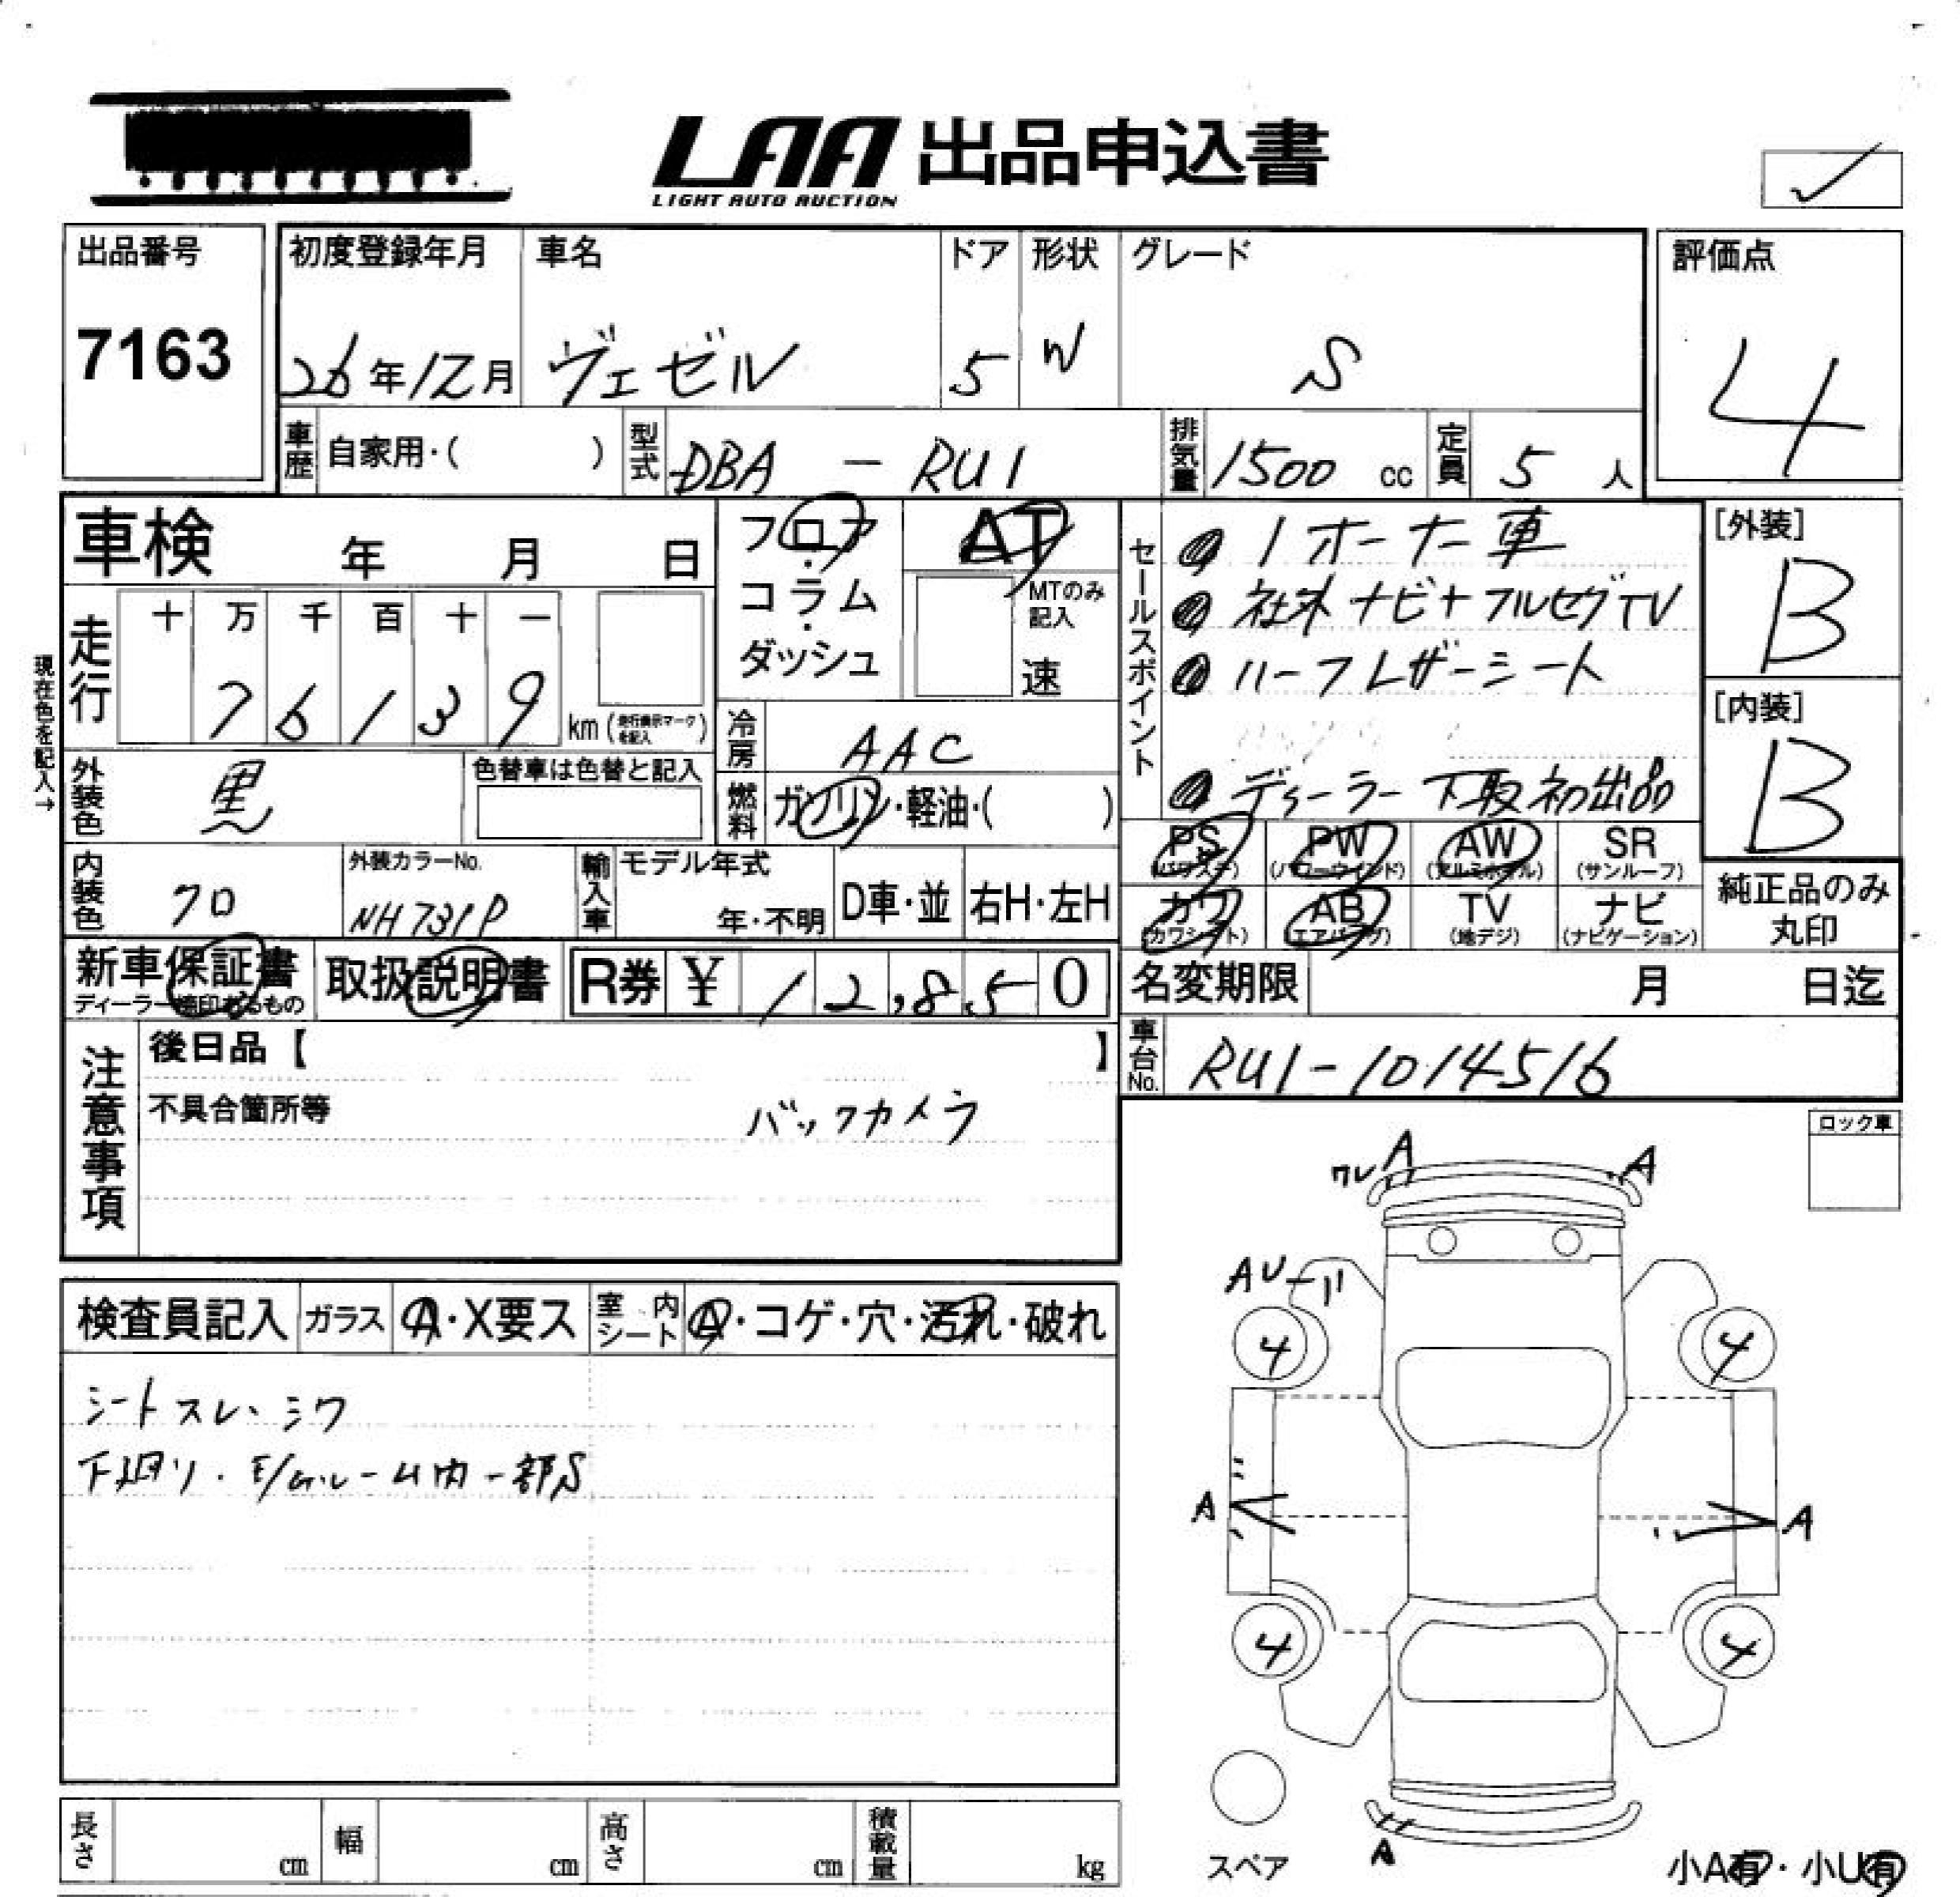 LAA 出品申込書
LIGHT AUTO AUCTION
出品番号
7163
初度登録年月
26年12月
車名
ヴェゼル
ドア
5
形状
W
グレード
S
評価点
4
車歴
自家用・( )
型式
DBA - RU1
排気量
1500 cc
定員
5 人
車検 年 月 日
現在色を記入→
走行
十 万 千 百 十 一
7 6 1 3 9
km (走行表示マークを記入)
フロア・コラム・ダッシュ
AT
MTのみ記入
速
冷房
AAC
燃料
ガソリン・軽油・( )
外装色
黒
色替車は色替と記入
内装色
クロ
外装カラーNo.
NH731P
輸入車
モデル年式
年・不明
D車・並
右H・左H
セールスポイント
1オーナー車
社外ナビ+フルセグTV
ハーフレザーシート
ディーラー下取初出品
[外装]
B
[内装]
B
PS (パワステ)
PW (パワーウインド)
AW (アルミホイル)
SR (サンルーフ)
カワ (カワシート)
AB (エアバッグ)
TV (地デジ)
ナビ (ナビゲーション)
純正品のみ
丸印
新車保証書
ディーラー捺印あるもの
取扱説明書
R券 ¥ 12,850
名変期限 月 日迄
車台No.
RU1-1014516
注意事項
後日品【 】
不具合箇所等
バックカメラ
検査員記入
ガラス
A・X要ス
室内シート
A・コゲ・穴・汚れ・破れ
シートスレ、シワ
下廻り・E/gルーム内一部S
長さ cm
幅 cm
高さ cm
積載量 kg
ロック車
ワレ A
A
AU
4
4
A
A
4
4
スペア
A
小A有・小U有